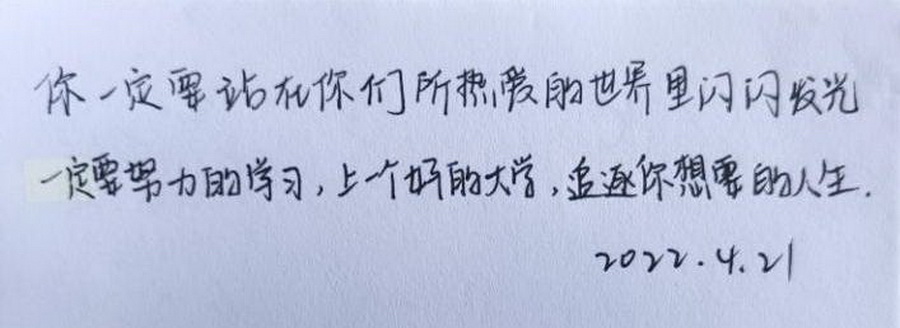 你一定要站在你们所热爱的世界里闪闪发光
一定要努力的学习,上一个好的大学,追逐你想要的人生.
2022.4.21